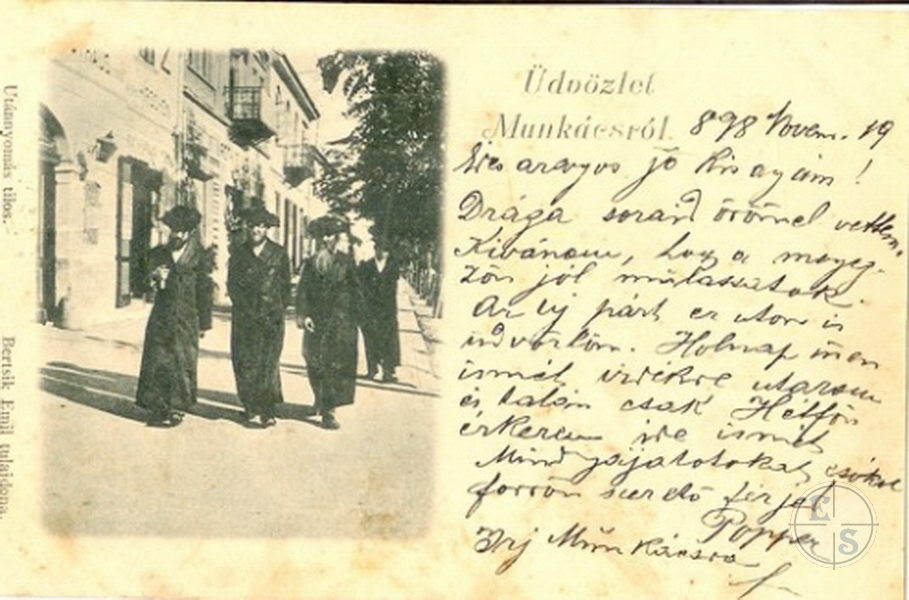 Utánnyomás tilos.
Bertsik Emil tulajdona.
Üdvözlet
Munkácsról.
898 Novem. 19
Édes aranyos jó kis anyám!
Drága soraid örömel vettem.
Kivánom, hogy a
jól mulassatok.
Az uj párt ez uton is
üdvözlöm. Holnap innen
ismét vidékre utazom
és talán csak Hétfőn
érkezem ide ismét
Mindnyájatokat csókol
forrón szerető férjed
Popper
Irj Munkácsra
E S